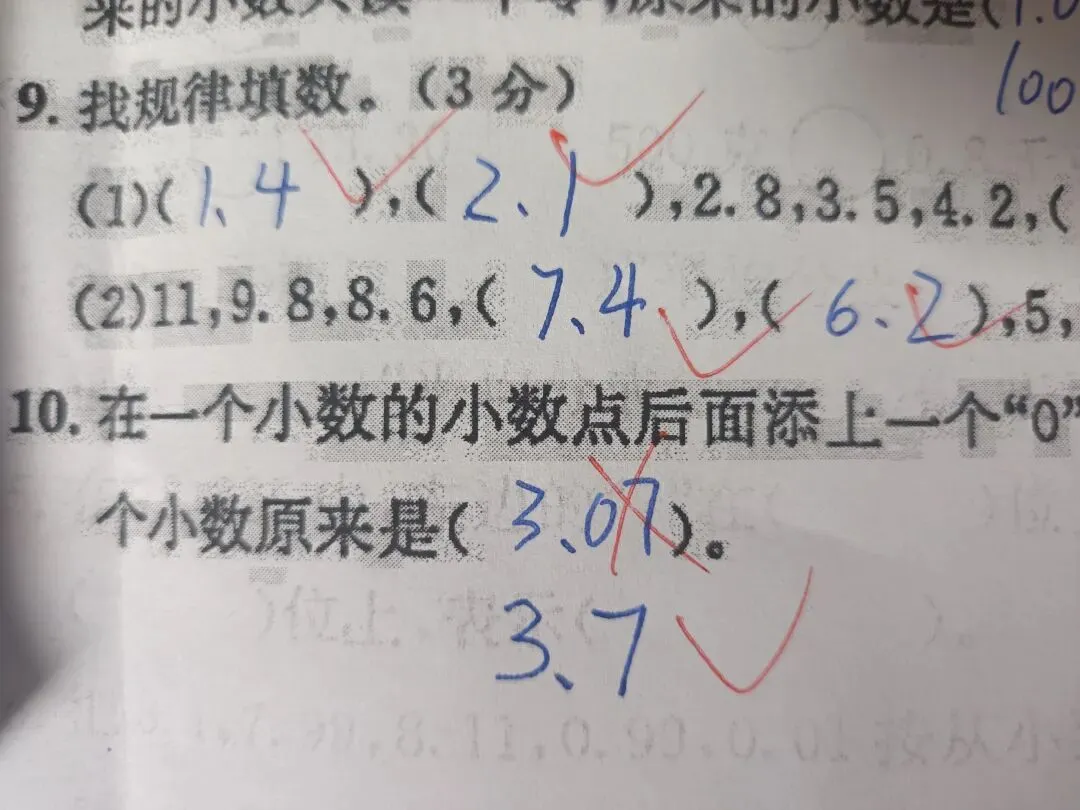 来的小数只读一个零,原来的小数是(1.0
100
9. 找规律填数。(3分)
(1)(1.4),(2.1),2.8,3.5,4.2,(
(2)11,9.8,8.6,(7.4),(6.2),5,
10. 在一个小数的小数点后面添上一个“0”
个小数原来是(3.07)。
3.7